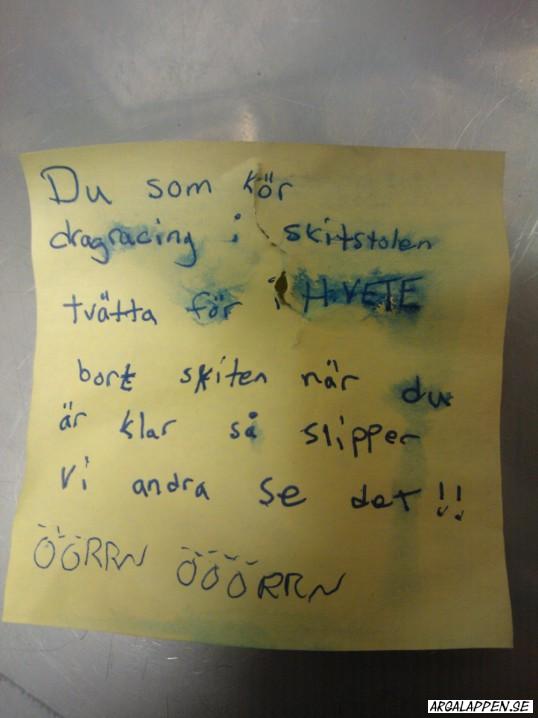 Du som kör
dragracing i skitstolen
tvätta för i H.VETE
bort skiten när du
är klar så slipper
vi andra se det!!
ÖÖRRN ÖÖÖRRN
ARGALAPPEN.SE